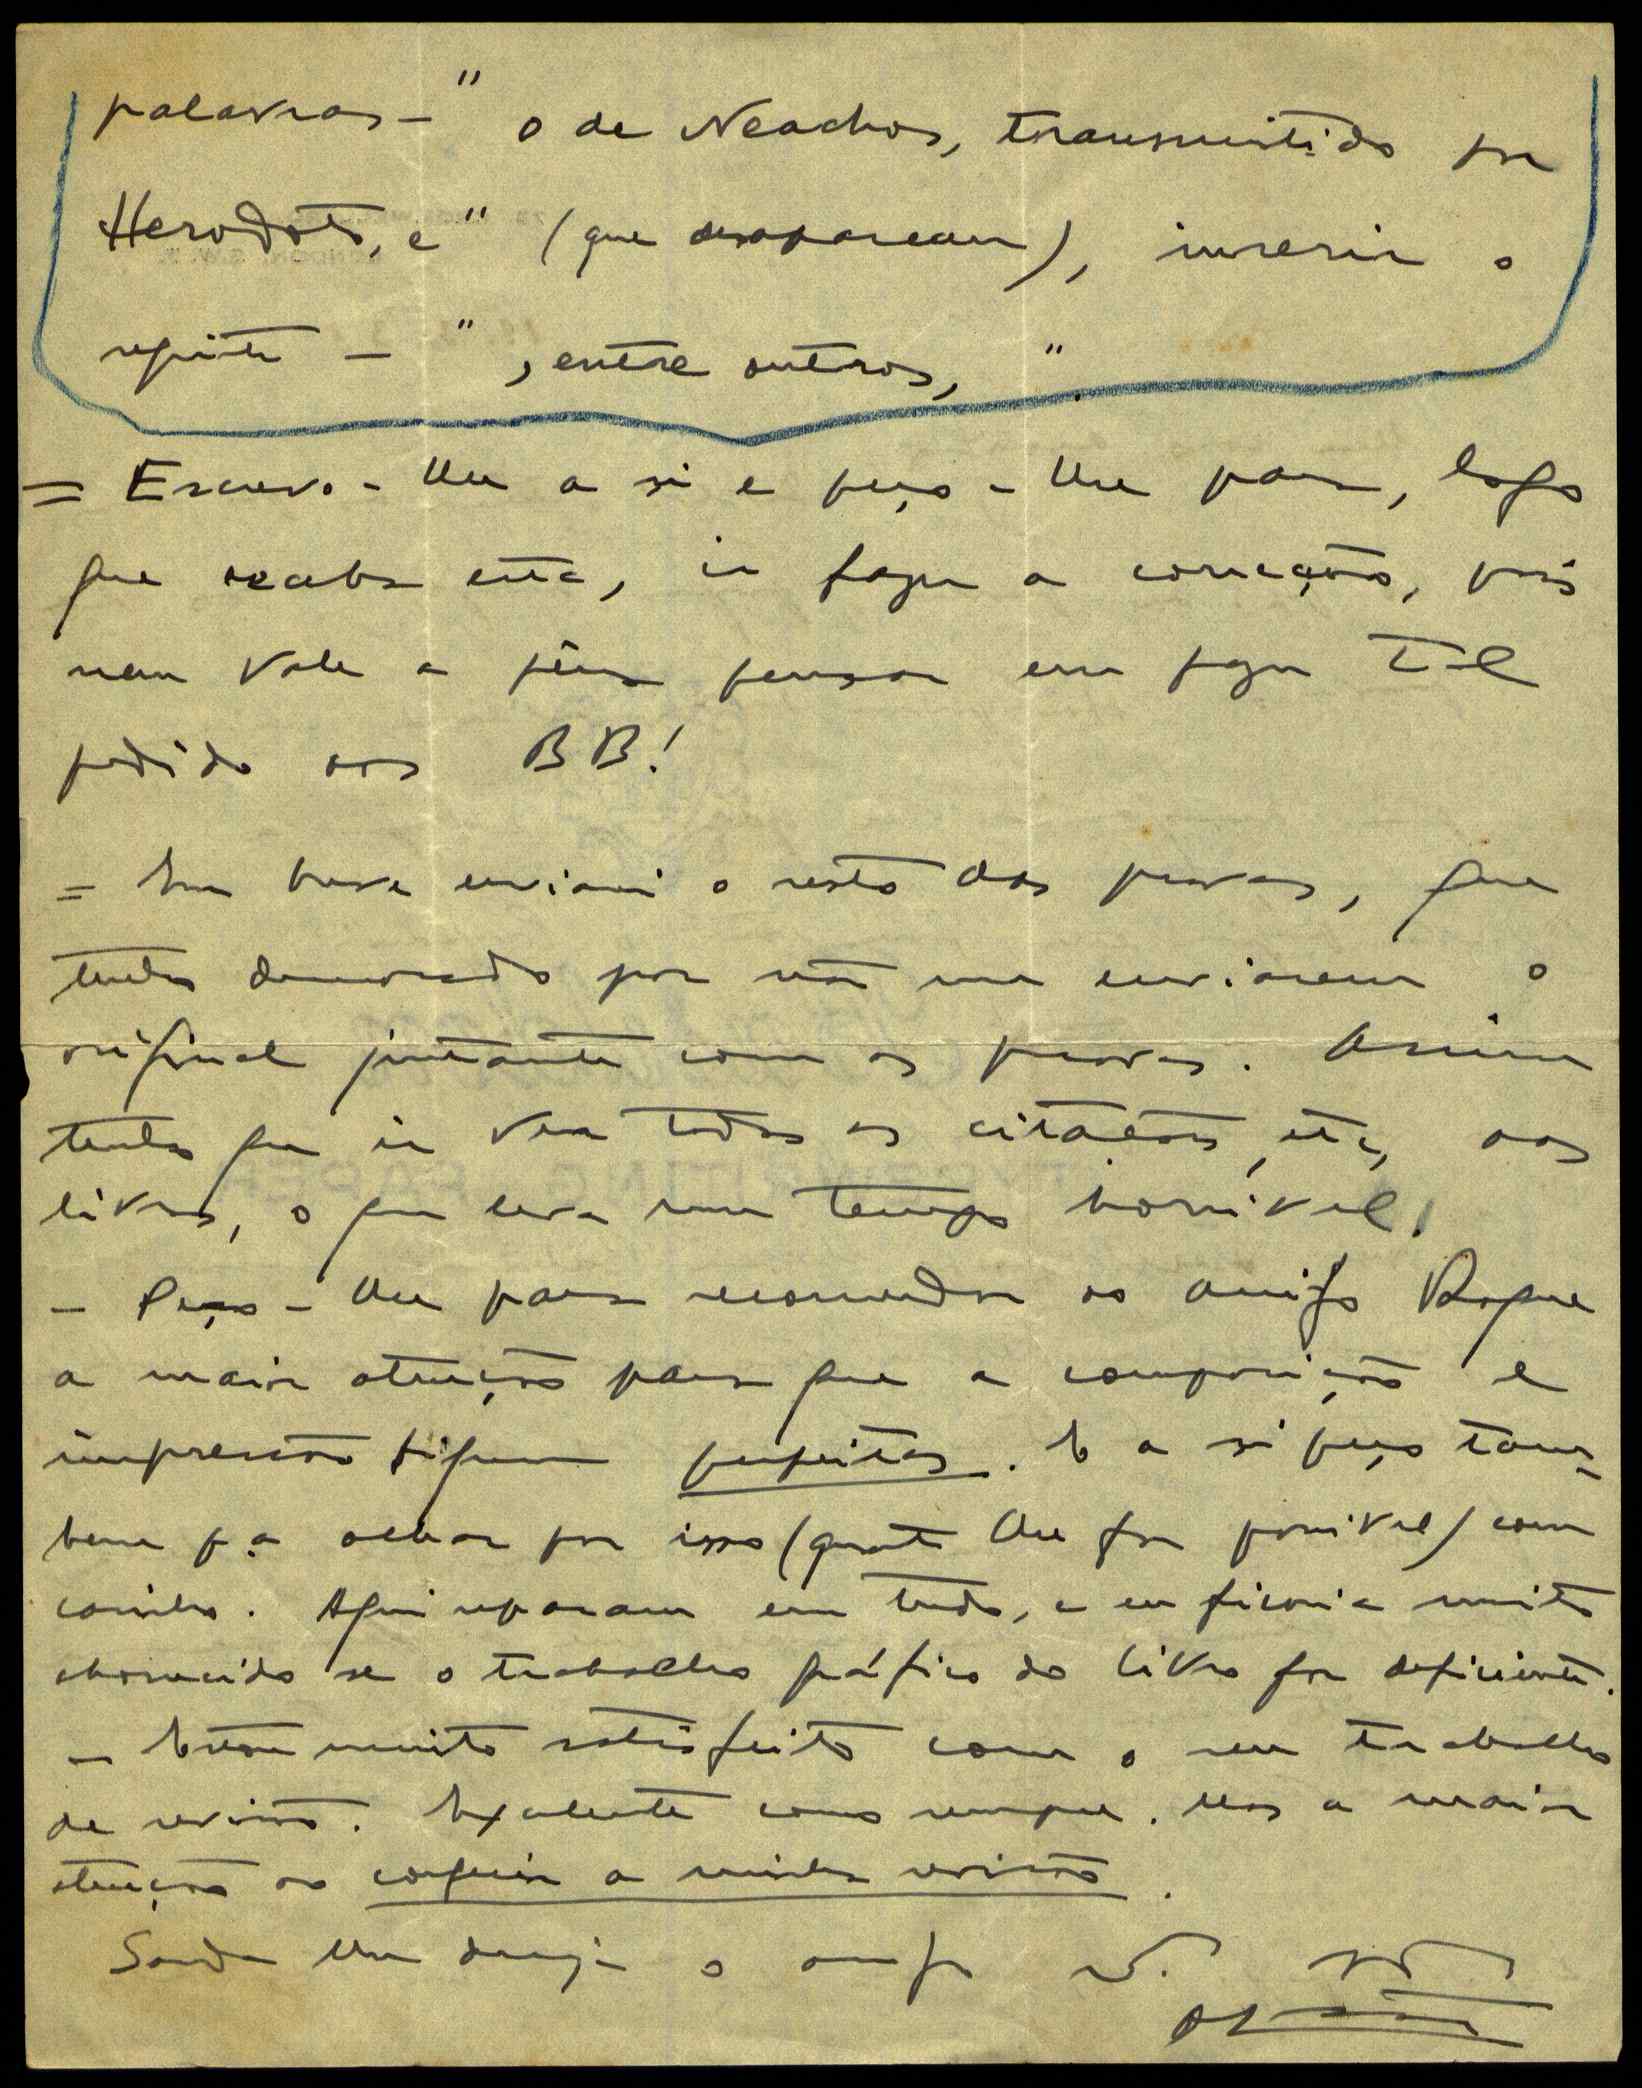 palavras – " o de Neachos, transmitido por
Herodoto, e " (que desaparecem), inserir o
seguinte – " , entre outros, " .
= Escrevo-lhe a si e peço-lhe para, logo
que receba esta, ir fazer a correcção, pois
nem vale a pêna pensar em fazer tal
pedido aos BB!
= Em breve enviarei o resto das provas, que
tenho demorado por não me enviarem o
original juntamente com as provas. Assim
tenho que ir ver todas as citações, etc, aos
livros, o que leva um tempo horrivel!
– Peço-lhe para recomendar ao amigo Roque
a maior atenção para que a composição e
impressão fiquem perfeitas. E a si peço tam-
bem pª olhar por isso (quanto lhe fôr possivel) com
carinho. Aqui reparam em tudo, e eu ficaria muito
aborrecido se o trabalho gráfico do livro fôr deficiente.
– Estou muito satisfeito com o seu trabalho
de revisão. Excelente como sempre. Mas a maior
atenção ao conferir a minha revisão.
Saude lhe deseja o amigo